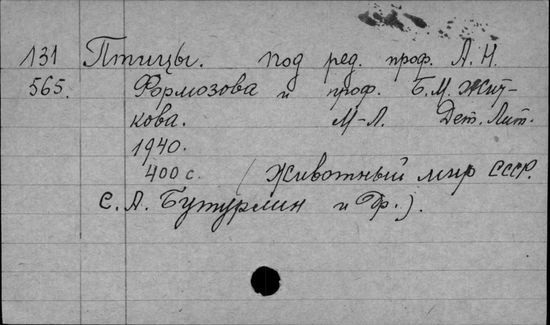 131 Птицы. под ред. проф. А. Н.
565. Формозова и проф. Б. М. Жит-
кова. М-Л. Дет. Лит.
1940.
400 с. (Животный мир СССР.
С. А. Бутурлин и Др.).